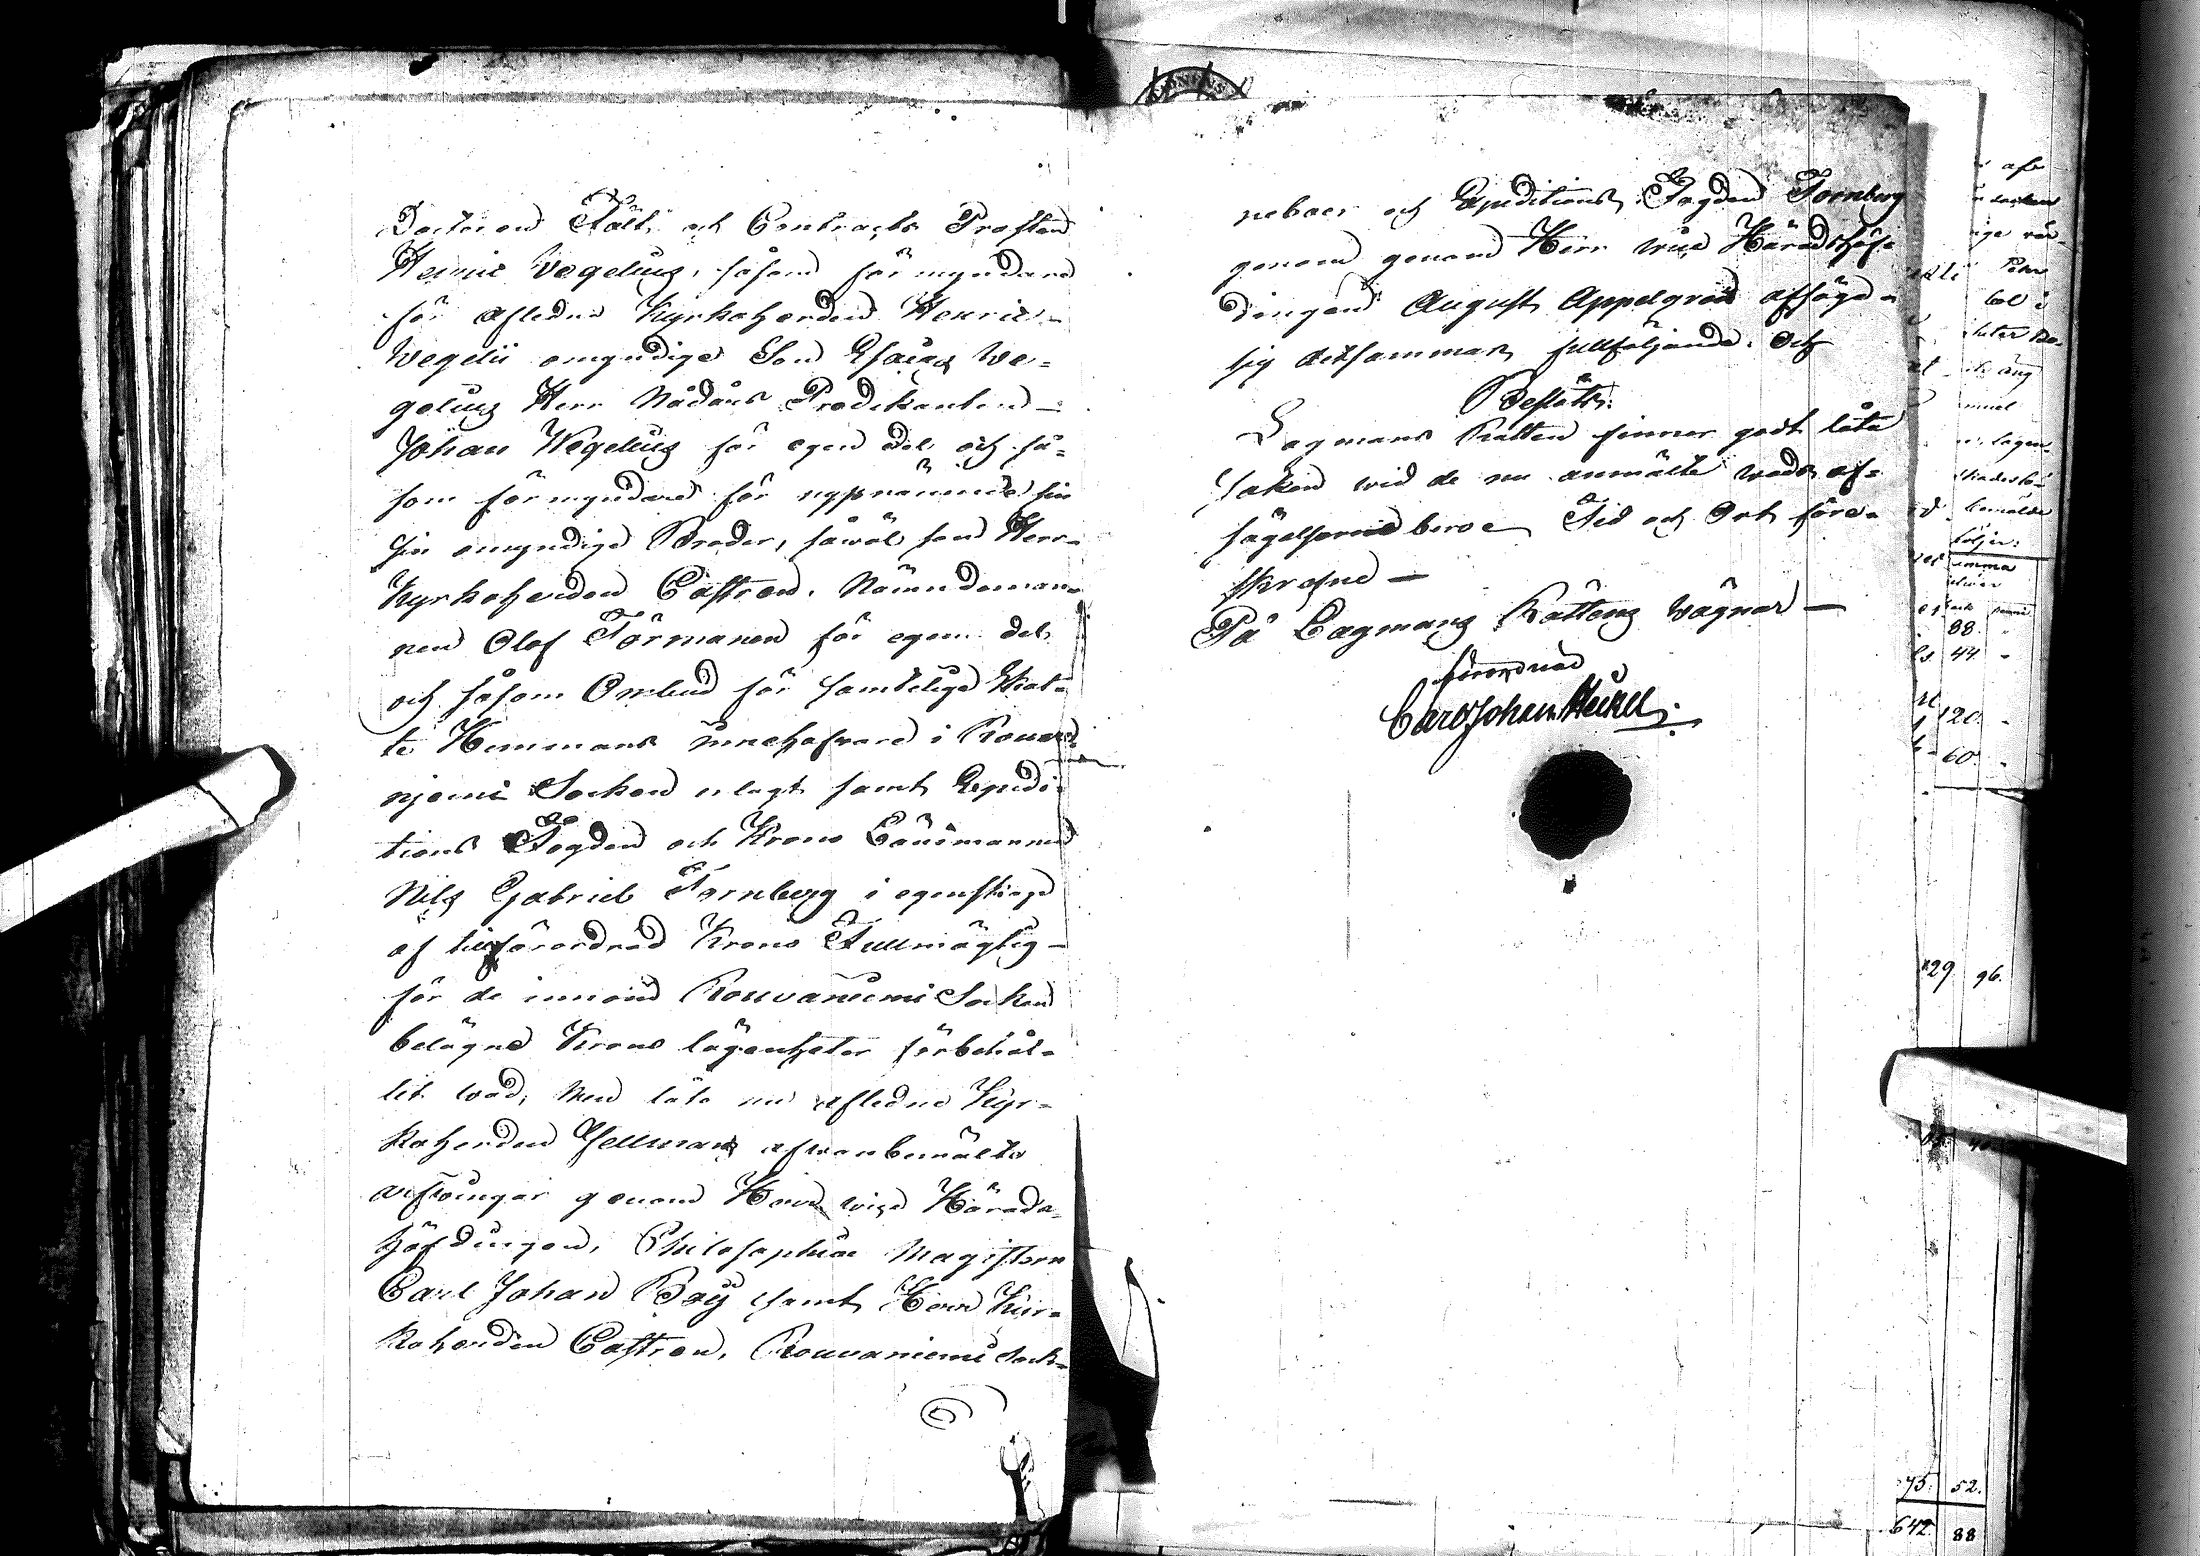 Doctoren Fält och Contracts Prosten
Henric Wegelius, såsom förmyndare
för afledne Kyrkoherden Henric
Wegelii omyndige Son Esaias We=
gelius Herr Nådårs Predikanten
Johan Wegelius för egen del och så=
som förmyndare för nypnämnde sin
sin omyndige Broder, såwäl som Herr
Kyrkoherden Castren, Nämndeman=
nen Olof Törmänen för egen del
och såsom Ombud för samtelige Skat=
te Hemmans innehafware i Rouwa
njemi Socken
samt Expedi=
tions Fogden och Krono Länsmannen
Nils Gabriel Fornberg i egenskap
af tillförordnad Krono Fullmägtig
för de innom Rouvaniemi Socken
belägne Krono lägenheter förbehål=
lit wad, men låta nu afledne Kyr=
koherden Fellmans ofwanbemälte
arfwingar genom Herr vice Härads=
höfdingen, Philosophiæ Magistern
Carl Johan Roy samt Herr Kyr=
koherden Castren, Rouvaniemi Sock=
neboer och Expeditions Fogden Fornberg
genom genom Herr vice Häradshöf=
dingen August Appelgren afsäga
sig detsammas fullföljande. Och
Beslöts:
Lagmans Rätten finner godt låta
saken wid de nu anmälte wads af=
sägelserne bero. Tid och Ort före=
skrefne —
På Lagmans Rättens wägnar —
förordnad
Carl Johan Heikel.
afse
rige
Peter
bol i
äng
lägen=
bemälde
följer:
88.
44.
120.
60.
129 96.
75. 52.
642 88